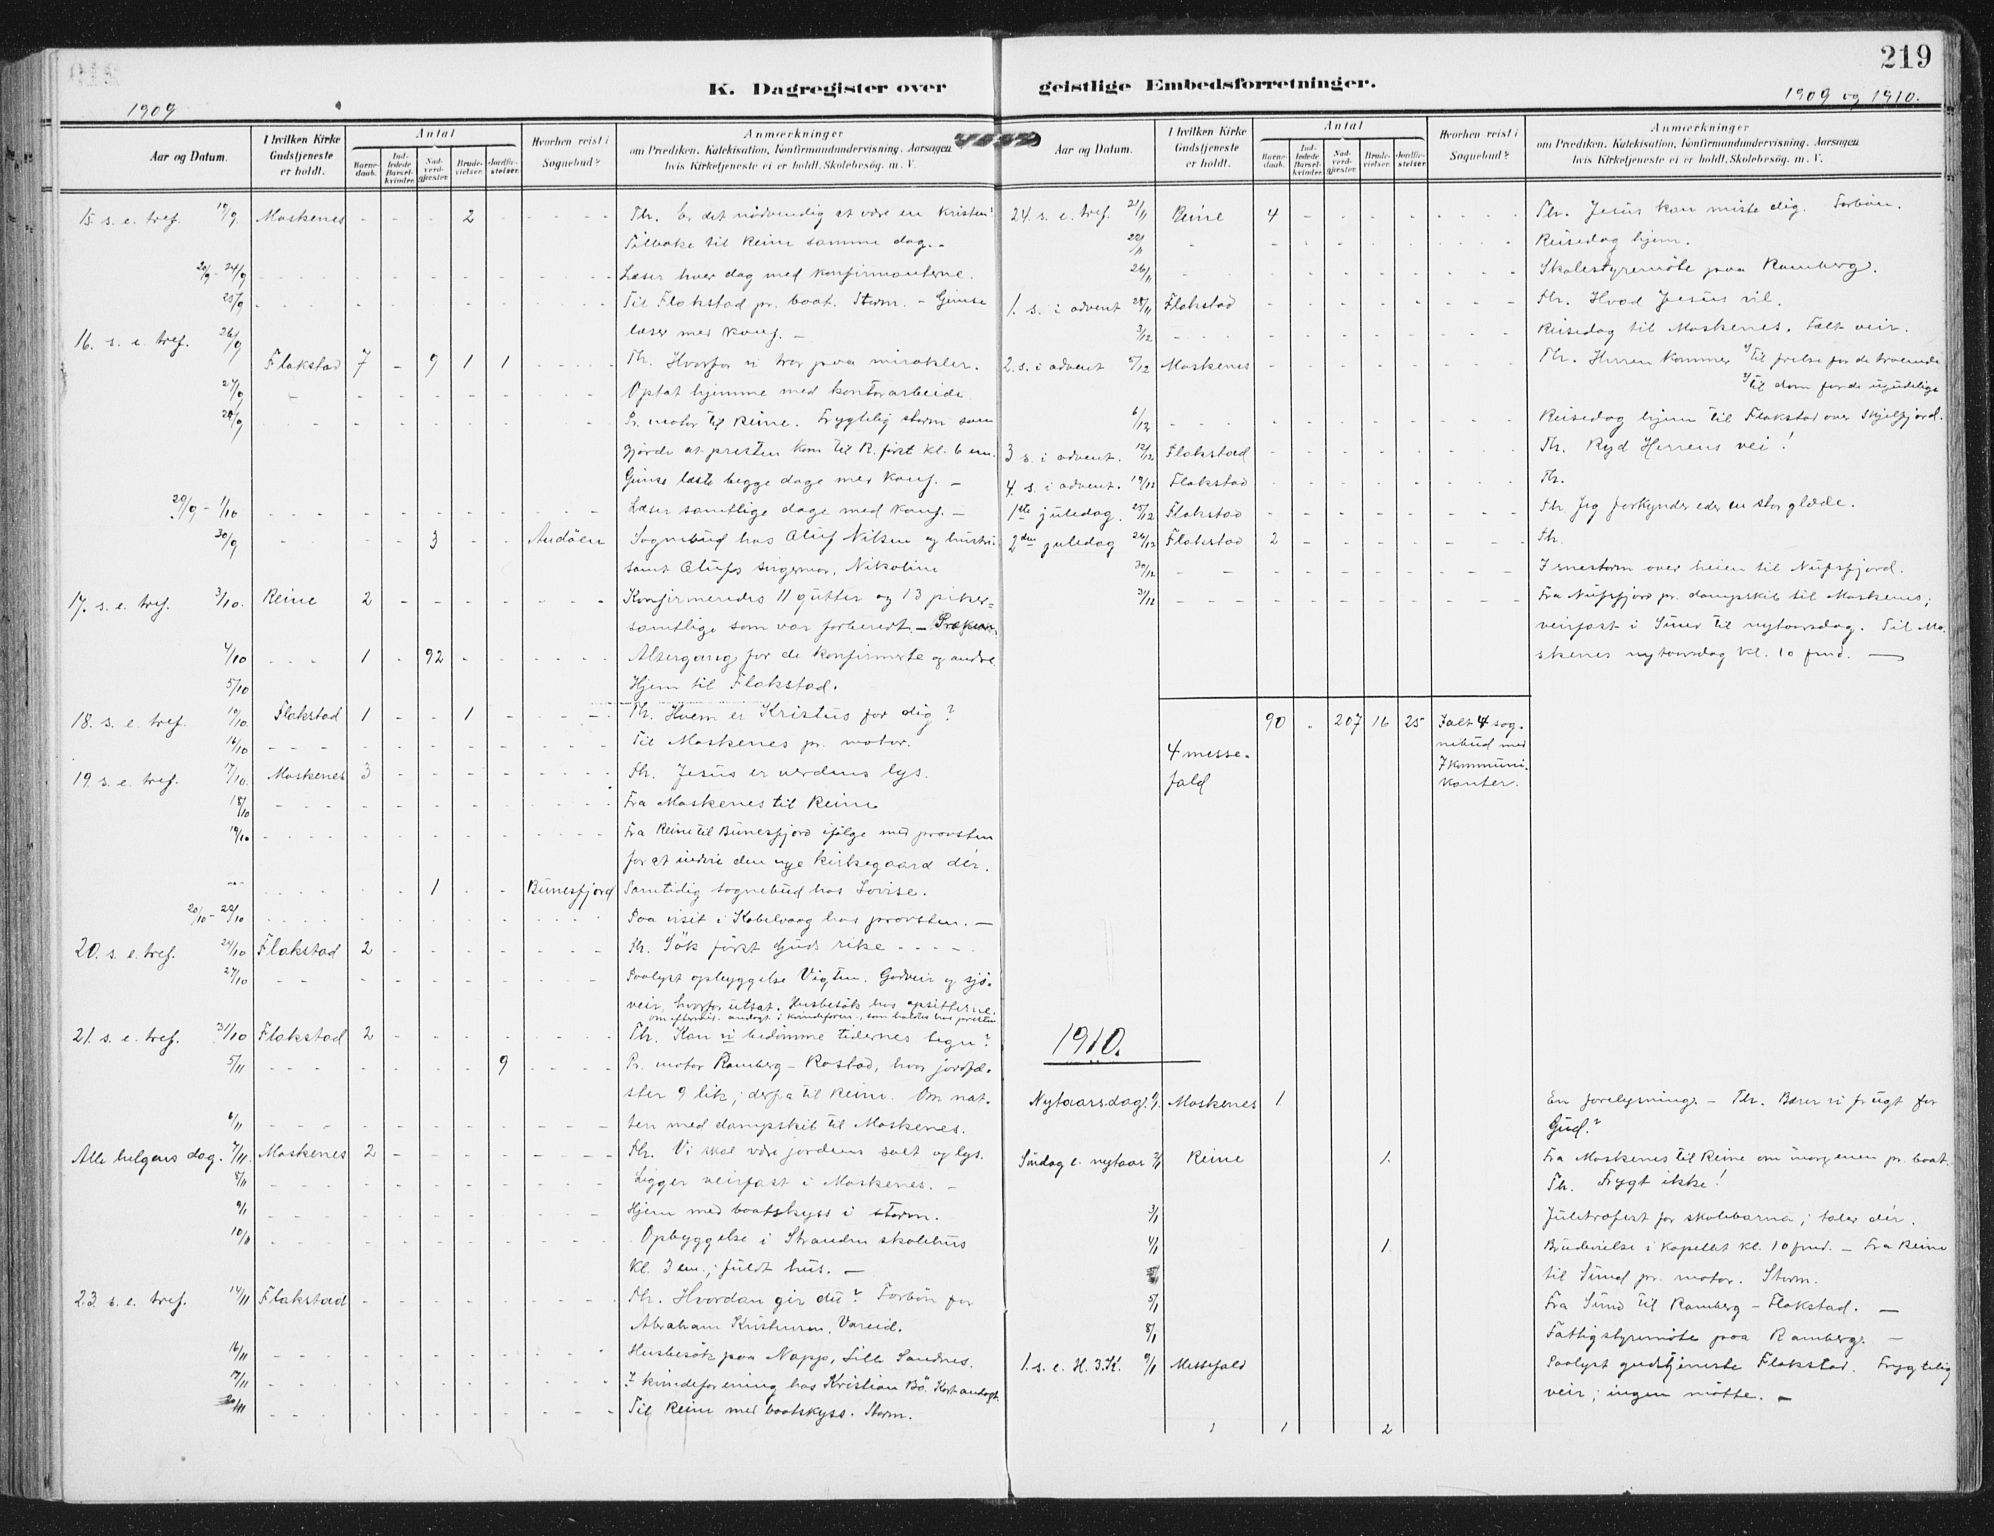 219
K. Dagregister over geistlige Embedsforretninger.
1909
1909 og 1910.
Aar og Datum. I hvilken Kirke Gudstjeneste er holdt. Antal Barnedaab. Indledede Barselkvinder. Nadverdgjester. Brudevielser. Jordfæstelser. Hvorhen reist i Sognebud? Anmærkninger om Prædiken, Katekisation, Konfirmandundervisning, Aarsagen hvis Kirketjeneste ei er holdt, Skolebesøg, m. V.
15. s. e. tref. 19/9 Moskenes - - - 2 - Th. Er det nødvendig at være en kristen?
Tilbake til Reine samme dag. -
20/9 - 24/9 Læser hver dag med konfirmanterne.
25/9 Til Flakstad pr. baat. Storm. - Gimse
læser med konf. -
16. s. e. tref. 26/9 Flakstad 7 - 9 1 1 Th. Hvorfor vi tror paa mirakler.
27/9 Optat hjemme med kontorarbeide.
28/9 Pr. motor til Reine. Frygtelig storm som
gjorde at presten kom til R. først kl. 6 em.
Gimse læste begge dage med konf. -
29/9 - 1/10 Læser samtlige dage med konf. -
30/9 - - 3 - - Andöen Sognebud hos Oluf Nilsen og hustru
samt Olufs svigermor, Nikoline
17. s. e. tref. 3/10. Reine 2 Konfirmeredes 11 gutter og 13 piker -
samtlige som var forberedt. -
4/10 1 - 92 Altergang for de konfirmerte og andre.
5/10 Hjem til Flakstad.
18. s. e. tref. 10/10. Flakstad 1 - - 1 - Th. Hvem er Kristus for dig?
16/10 Til Moskenes pr. motor.
19. s. e. tref. 17/10. Moskenes 3 Th. Jesus er verdens lys.
18/10 Fra Moskenes til Reine
19/10 Fra Reine til Bunesfjord ifølge med provsten
for at indvie den nye kirkegaard dér.
- - 1 - - Bunesfjord Samtidig sognebud hos Lovise.
20/10 - 22/10 Paa visit i Kabelvaag hos provsten. -
20. s. e. tref. 24/10 Flakstad 2 Th. Søk først Guds rike - - - -
27/10 Paalyst opbyggelse Vigten. Godveir og sjö-
veir, hvorfor utsat. Husbesök hos opsitterne.
om efterm. andagt i kvindeforen., som holdes hos presten
21. s. e. tref. 31/10 Flakstad 2 Th. Kan vi bedömme tidernes tegn?
5/11 9 Pr. motor Ramberg - Rostad, hvor jordfæ-
ster 9 lik; derfra til Reine. Om nat-
6/11 ten med dampskib til Moskenes.
Alle helgens dag. 7/11 Moskenes 2 Th. Vi skal være jordens salt og lys.
8/11 Ligger veirfast i Moskenes. -
9/11 Hjem med baatskyss i storm.
10/11 Opbyggelse i Stranden skolehus
kl. 3 em.; fuldt hus. -
23. s. e. tref. 14/11 Flakstad Th. Hvordan gir du? Forbön for
Abraham Kristensen, Vareid.
16/11 Husbesök paa Napp, Lille Sandnes.
17/11 I kvindeforening hos Kristian Bö. Kort andagt.
Til Reine med baatskyss. Storm.
Aar og Datum. I hvilken Kirke Gudstjeneste er holdt. Antal Barnedaab. Indledede Barselkvinder. Nadverdgjester. Brudevielser. Jordfæstelser. Hvorhen reist i Sognebud? Anmærkninger om Prædiken, Katekisation, Konfirmandundervisning, Aarsagen hvis Kirketjeneste ei er holdt, Skolebesøg, m. V.
24. s. e. tref. 21/11 Reine 4 Th. Jesus kan miste dig. Forbön.
22/11 Reisedag hjem.
26/11 Skolestyremöte paa Ramberg.
1. s. i advent 28/11 Flakstad Th. Hvad Jesus vil.
3/12 Reisedag til Moskenes. Fælt veir.
2. s. i advent 5/12 Moskenes Th. Herren kommer 1/ til frelse for de troende
2/ til dom for de ugudelige
6/12 Reisedag hjem til Flakstad over Skjelfjord.
3 s. i advent. 12/12 Flakstad Th. Ryd Herrens vei!
4. s. i advent. 19/12 Flakstad Th.
1ste juledag. 25/12 Flakstad Th. Jeg forkynder eder en stor glæde.
2den juledag 26/12 Flakstad 2 Th.
30/12 I snestorm over heien til Nufsfjord.
31/12 Fra Nufsfjord pr. dampskib til Moskenes;
veirfast i Sund til nytaarsdag. Til Mo-
skenes nytaarsdag kl. 10 fmd. -
90 - 207 16 25 Ialt 4 sog-
nebud med
7 kommuni-
kanter.
4 messe-
fald
1910.
Nytaarsdag. 1/1. Moskenes 1. En forelysning. - Th. Bærer vi frugt for
Gud?
Söndag e. nytaar 2/1 Reine 1. Fra Moskenes til Reine om morgenen pr. baat.
Th. Frygt ikke!
3/1 Juletræfest for skolebarna; taler dér.
4/1 1. Brudevielse i kapellet kl. 10 fmd. - Fra Reine
til Sund pr. motor. Storm.
5/1 Fra Sund til Ramberg - Flakstad. -
8/1 Fattigstyremöte paa Ramberg. -
1. s. e. H. 3. K. 9/1 Messefald Paalyst gudstjeneste Flakstad. Frygtelig
veir; ingen mötte. -
1 1 2